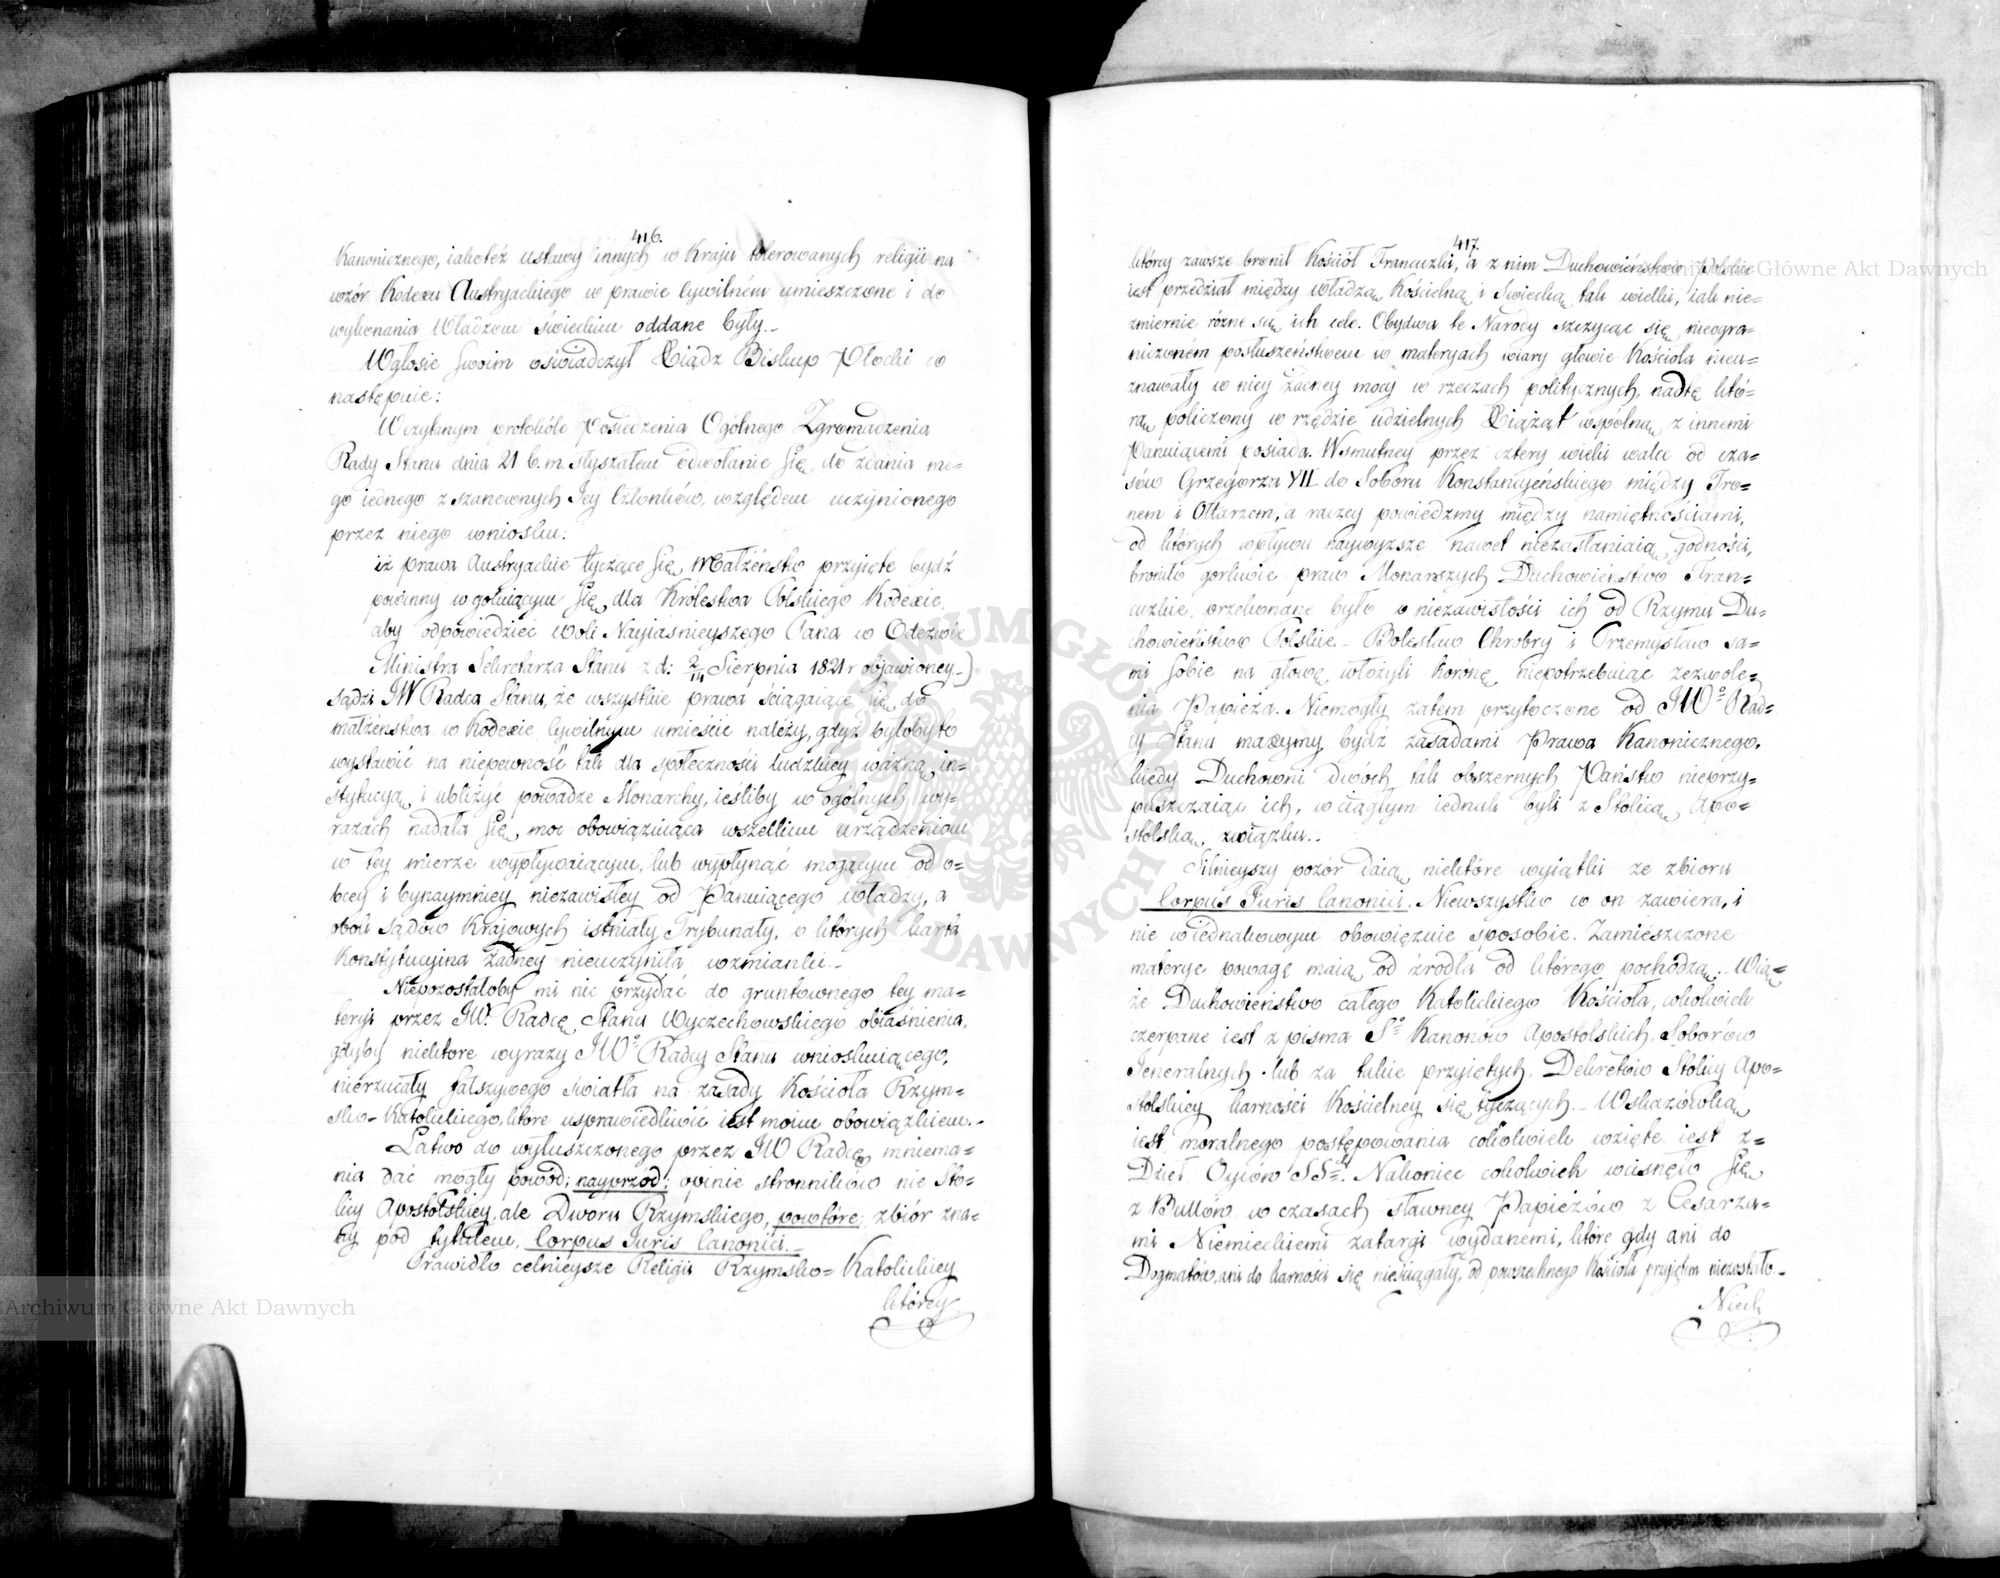 416.
Kanonicznego, iakoteż ustawy innych w Kraju tolerowanych religii na
wzór Kodexu Austryackiego w prawie Cywilném umieszczone i do
wykonania Władzom świeckim oddane były.–
W głosie swoim oświadczył Xiądz Biskup Płocki co
następuie:
W czytanym protokóle Posiedzenia Ogólnego Zgromadzenia
Rady Stanu dnia 21 b. m. słyszałem odwołanie się do zdania me=
go iednego z szanownych Jey Członków, względem uczynionego
przez niego wniosku:
iż prawa Austryackie tyczące się Małżeństw przyięte bydź
powinny w gotuiącym się dla Królestwa Polskiego Kodexie,
aby odpowiedzieć woli Nayiaśnieyszego Pana w Odezwie
Ministra Sekretarza Stanu z d: 2/14 Sierpnia 1821 r objawioney.–)
sądzi JW Radca Stanu, że wszystkie prawa sciągaiące się do
małżeństwa w Kodexie Cywilnym umieścić należy, gdyż byłoby to
wystawić na niepewność tak dla społeczności ludzkiey ważną in=
stytucyą i ubliżyć powadze Monarchy, ieśliby w ogólnych wy=
razach nadała się moc obowiązuiąca wszelkim urządzeniom
w tey mierze wypływaiącym, lub wypłynąć mogącym od o=
bcey i bynaymniey niezawisłey od Panuiącego władzy, a
obok sądów Krajowych istniały Trybunały, o których karta
Konstytucyina żadney nieuczyniła wzmianki.–
Niepozostałoby mi nic przydać do gruntownego tey ma=
teryi przez JW. Radcę Stanu Wyczechowskiego obiaśnienia,
gdyby niektore wyrazy JWo Radcy Stanu wnioskuiącego,
nierzucały fałszywego światła na zasady Kościoła Rzym=
sko=Katolickiego, które usprawiedliwić iest moim obowiązkiem.–
Łatwo do wytłuszczonego przez JW Radcę mniema=
nia dać mogły powód: nayprzód: opinie stronników nie Sto=
licy Apostolskiey, ale Dworu Rzymskiego, powtóre: zbiór zna=
ny pod tytułem, Corpus Juris Canonici.–
Prawidło celnieysze Religii Rzymsko=Katolickiey
którey
417.
którey zawsze bronił Kościół Francuzki, a z nim Duchowieństwo Polskie
iest przedział między władzą Kościelną i świecką tak wielki, iak nie=
zmiernie różne są ich cele. Obydwa te Narody szczycąc się nieogra=
niczoném posłuszeństwem w materyach wiary głowie Kościoła nieu=
znawały w niey żadney mocy w rzeczach politycznych, nad tę któ=
rą policzony w rzędzie udzielnych Xiążąt wspólną z innemi
Panuiącemi posiada. W smutney przez cztery wieki walce od cza=
sów Grzegorza VII do Soboru Konstancyeńskiego między Tro=
nem i Ołtarzem, a raczey powiedzmy między namiętnościami,
od których wpływu naywyższe nawet niezasłaniaią godności,
broniło gorliwie praw Monarszych Duchowieństwo Fran=
cuzkie, przekonane było o niezawisłości ich od Rzymu Du=
chowieństwo Polskie.– Bolesław Chrobry i Przemysław sa=
mi sobie na głowę włożyli koronę niepotrzebuiąc zezwole=
nia Papieża. Niemogły zatem przytoczone od JWo Rad=
cy Stanu maxymy bydź zasadami Prawa Kanonicznego,
kiedy Duchowni dwóch tak obszernych Państw nieprzy=
puszczaiąc ich, w ciągłym iednak byli z Stolicą Apo=
stolską związku.–
Silnieyszy pozór daią niektóre wyiątki ze zbioru
Corpus Juris Canonici. Niewszystko co on zawiera, i
nie w iednakowym obowięzuie sposobie. Zamieszczone
materye powagę maią od źrodła od którego pochodzą.– Wią=
że Duchowieństwo całego Katolickiego Kościoła, cokolwiek
czerpane iest z pisma So Kanonów Apostolskich, Soborów
Jeneralnych lub za takie przyiętych, Dekretów Stolicy Apo=
stolskiey karności Kościelney się tyczących.– Wskazówką
iest moralnego postępowania cokolwiek wzięte iest z=
Dzieł Oyców SS. Nakoniec cokolwiek wcisnęło się
z Bullów w czasach sławney Papieżów z Cesarza=
mi Niemieckiemi zatargi wydanemi, które gdy ani do
Dogmatów, ani do karności się nieściągały, od powszechnego Kościoła przyiętem niezostało.–
Niech
Archiwum Główne Akt Dawnych
Główne Akt Dawnych
ARCHIWUM GŁÓWNE AKT DAWNYCH